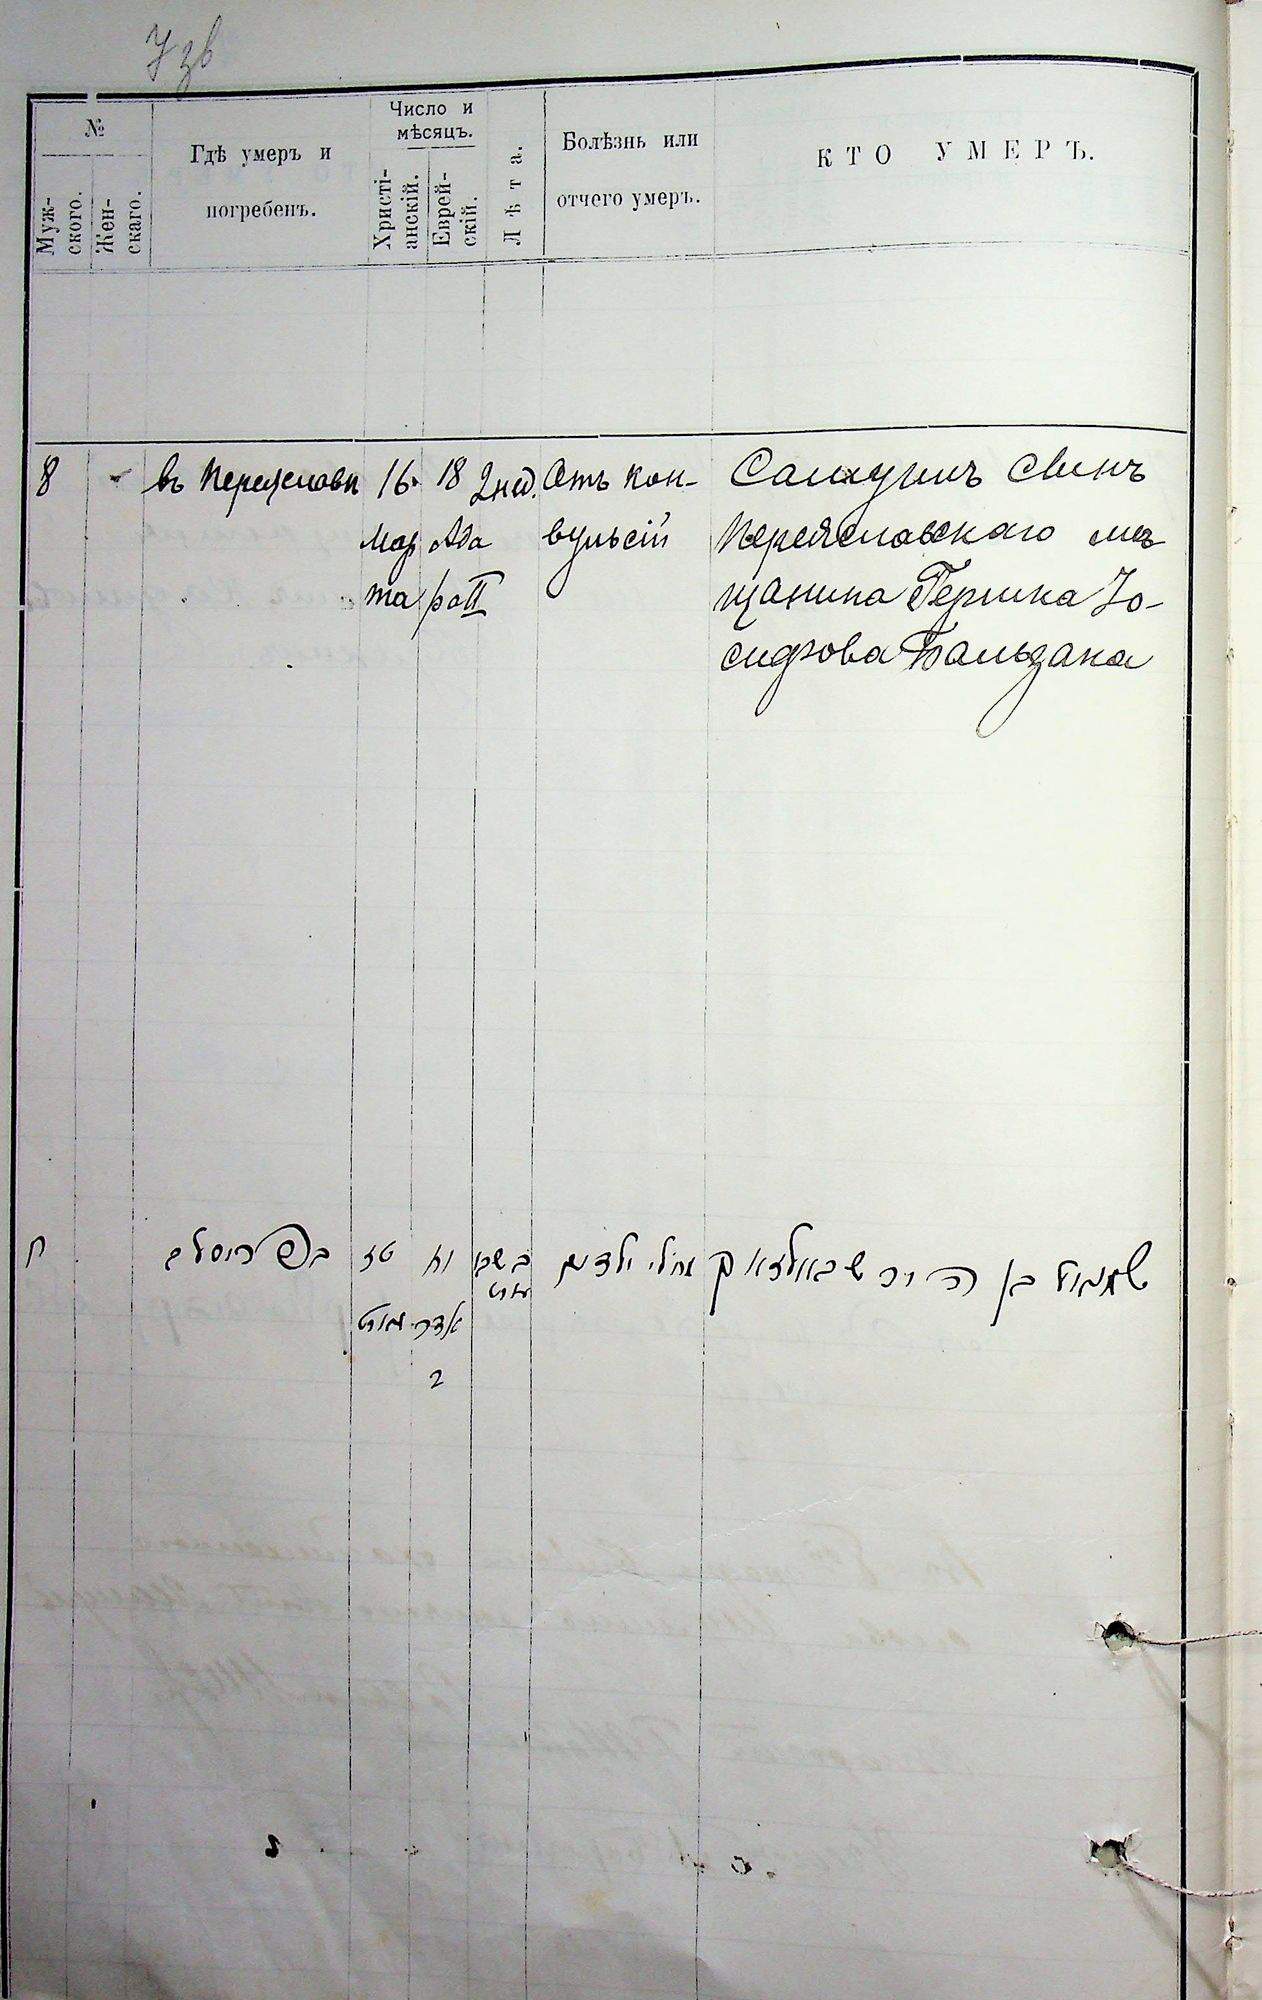 №
Муж-
скаго.
Жен-
скаго.
Гдѣ умеръ и
погребенъ.
Число и
мѣсяцъ.
Христі-
анскій.
Еврей-
скій.
Лѣта.
Болѣзнь или
отчего умеръ.
КТО УМЕРЪ.
8
въ Переяславѣ
16
Мар
та
18
Ада
ра II
2 нед.
Отъ кон-
вульсій
Самуилъ сынъ
Переяславскаго мѣ
щанина Гершка Іо-
сифова Бальзана
ח
טז
מארט
יח
אדר
2
שמואל בן